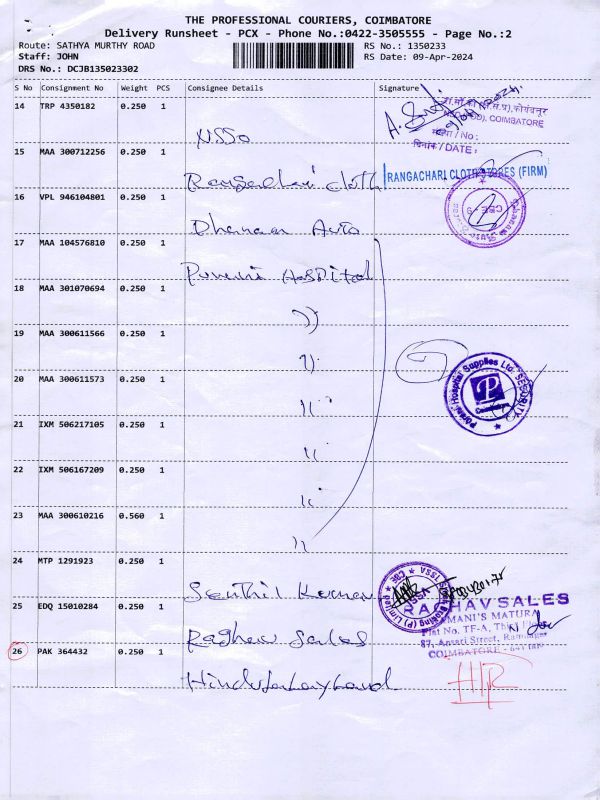 THE PROFESSIONAL COURIERS, COIMBATORE
Delivery Runsheet - PCX - Phone No.:0422-3505555 - Page No.:2
Route: SATHYA MURTHY ROAD
RS No.: 1350233
Staff: JOHN
RS Date: 09-Apr-2024
DRS No.: DCJB135023302
S No Consignment No Weight PCS Consignee Details Signature
14 TRP 4350182 0.250 1
NSSO
COIMBATORE
/ No:
/ DATE:
15 MAA 300712256 0.250 1
Rangachari cloth
RANGACHARI CLOTH STORES (FIRM)
16 VPL 946104801 0.250 1
Dhanaam Auto
CBE - 9
17 MAA 104576810 0.250 1
Purani Hospital
18 MAA 301070694 0.250 1
"
19 MAA 300611566 0.250 1
"
20 MAA 300611573 0.250 1
"
Hospital Supplies Ltd. SECURITY
P
Coimbatore
21 IXM 506217105 0.250 1
"
22 IXM 506167209 0.250 1
"
23 MAA 300610216 0.560 1
"
24 MTP 1291923 0.250 1
Senthil Kumar
25 EDQ 15010284 0.250 1
Raghav Sales
RAGHAV SALES
MANI'S MATURA
Flat No. TF-A, Third Floor
87, Ansari Street, Ramnagar
COIMBATORE
26 PAK 364432 0.250 1